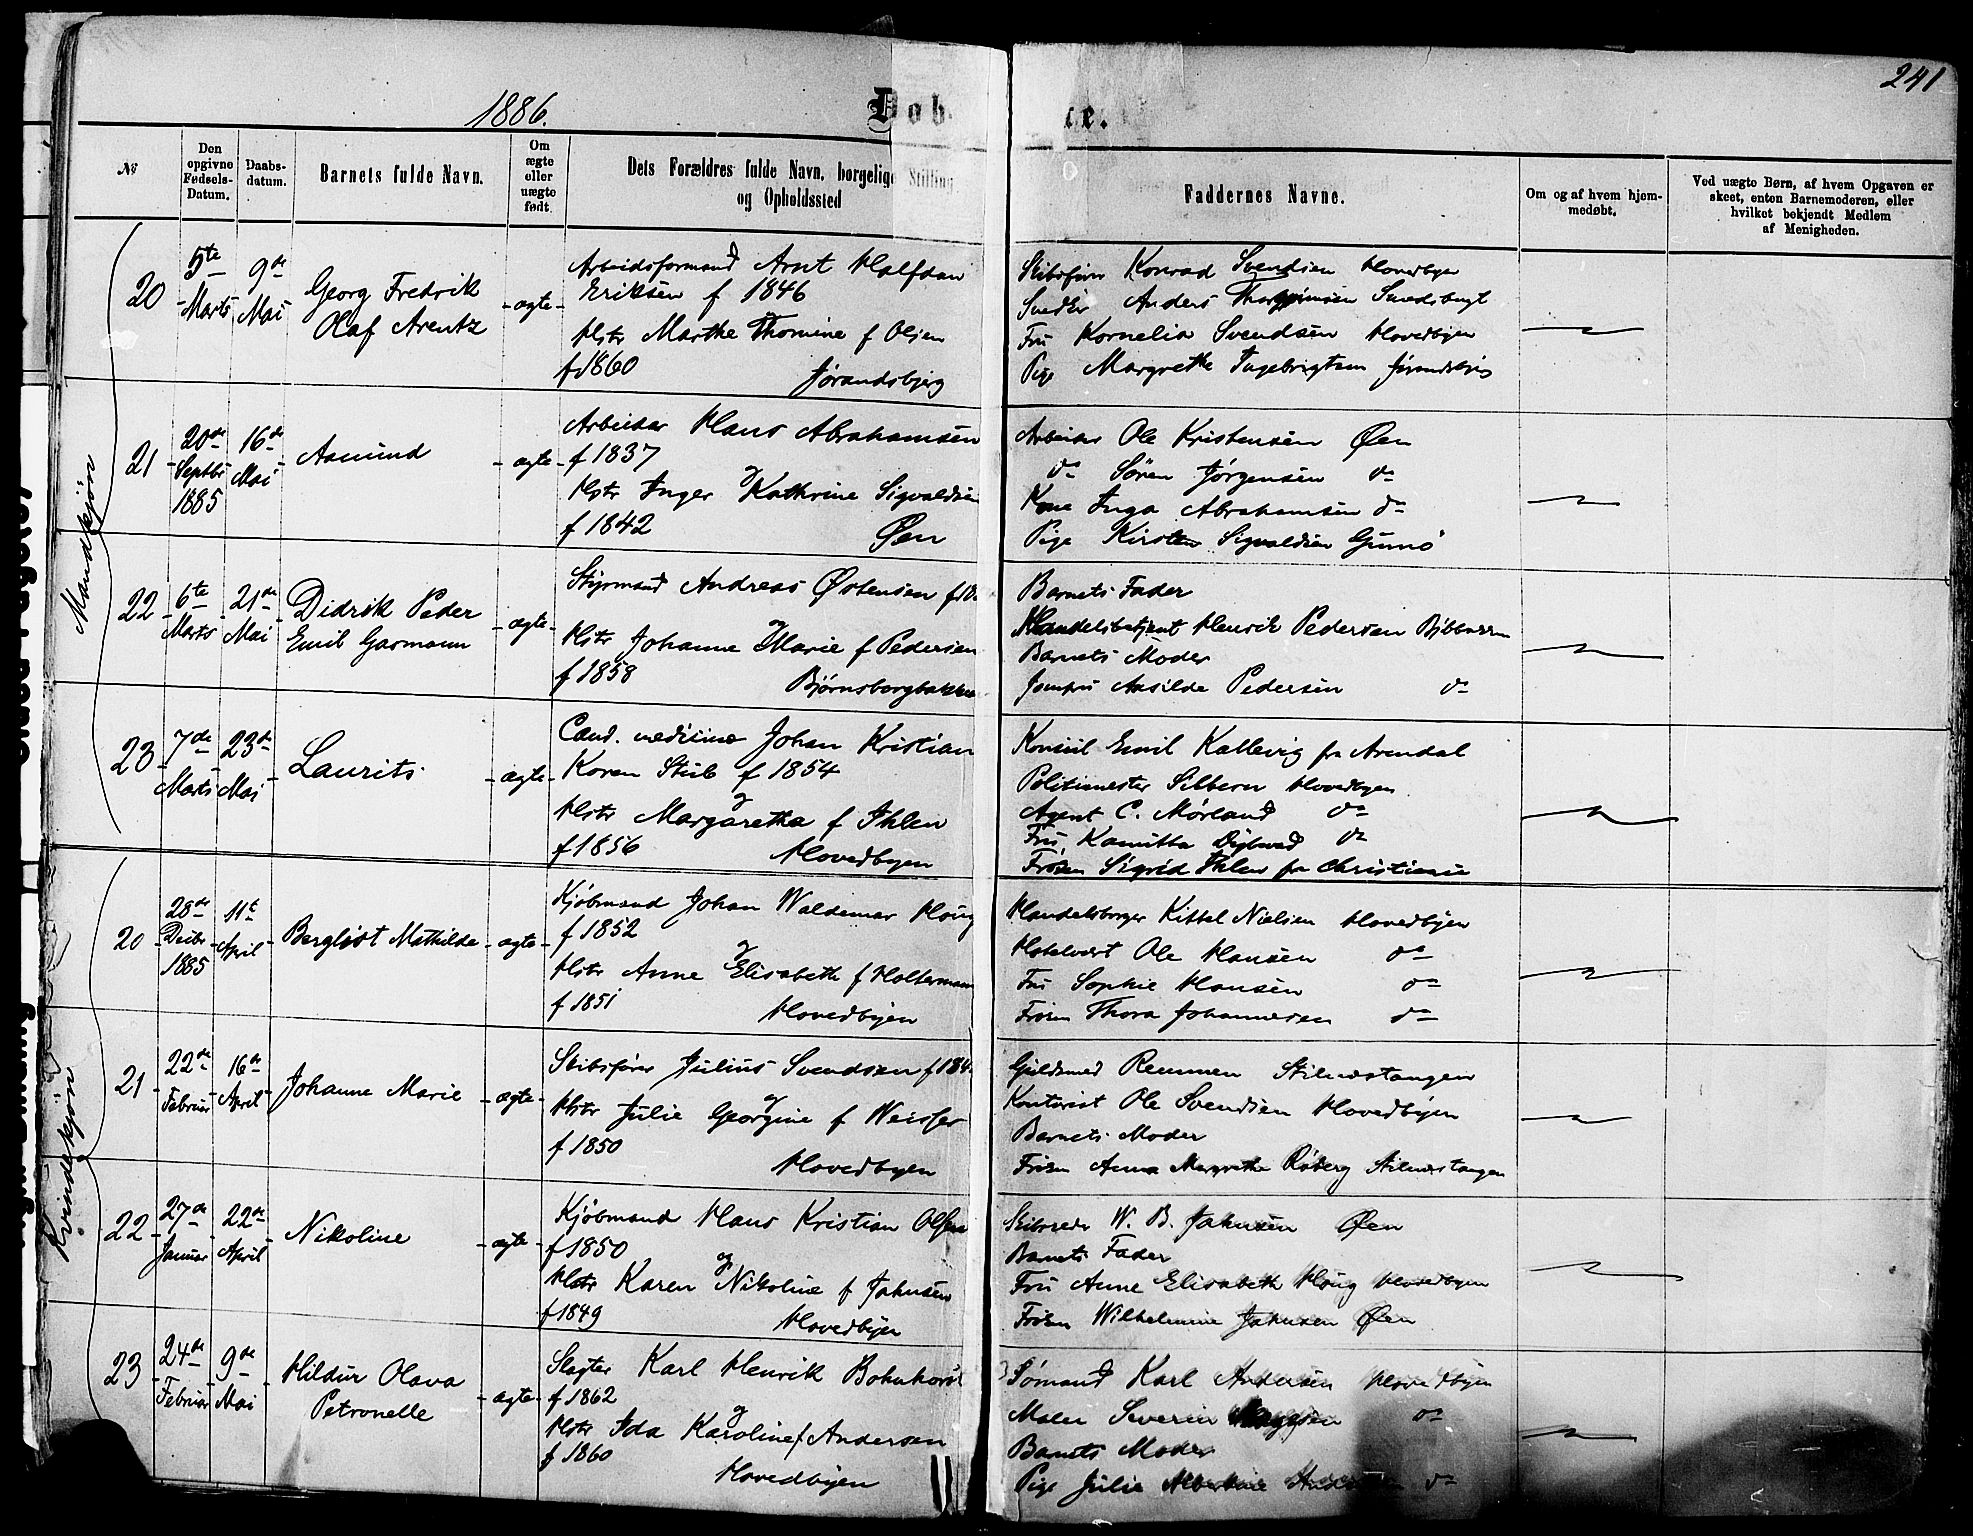 241
1886.
Dåb
te.
№
Den opgivne Fødsels-Datum.
Daabs-datum.
Barnets fulde Navn.
Om ægte eller uægte født.
Dets Forældres fulde Navn, borgelige Stilling og Opholdssted
Faddernes Navne.
Om og af hvem hjem-medøbt.
Ved uægte Børn, af hvem Opgaven er skeet, enten Barnemoderen, eller hvilket bekjendt Medlem af Menigheden.
Mandkjøn
20
5te Marts
9de Mai
Georg Fredrik
Olaf Arentz
ægte
Arbeidsformand Arnt Halfdan
Eriksen f 1846
Hstr Marthe Thomine f Olsen
f 1860 Jørandsbjerg
Skibsfører Konrad Svendsen Hovedbyen
Anders
Fru Kornelia Svendsen Hovedbyen
Pige Margrethe Ingebrigtsen Jørandsbjerg
21
20de Septbr 1885
16de Mai
Aamund
ægte
Arbeider Hans Abrahamsen
f 1837
og
Hstr Inger Kathrine Sigvaldsen
f 1842 Øen
Arbeider Ole Kristensen Øen
do Søren Jørgensen do
Kone Inga Abrahamsen do
Pige Kirsten Sigvaldsen Gumø
22
6te Marts
21de Mai
Didrik Peder
Emil Garmann
ægte
Styrmand Andreas Østensen
og
Hstr Johanne Marie f Pedersen
f 1858 Bjørnsborgbakken
Barnets Fader
Handelsbetjent Henrik Pedersen
Barnets Moder
Jomfru Aasilde Pedersen do
23
7de Marts
23de Mai
Laurits
ægte
Cand. medicine Johan Kristian
Koren Stub f 1854
og
Hstr Margaretha f Ihlen
f 1856 Hovedbyen
Konsul Emil Kallevig fra Arendal
Politimester Sibbern Hovedbyen
Agent C. Mørland do
Fru Kamitta Dybwad do
Frøken Sigrid Ihlen fra Christiania
Kvindekjøn
20
28de Decbr 1885
11te April
Bergliot Mathilde
ægte
Kjøbmand Johan Waldemar Houg
f 1852
og
Hstr Anne Elisabeth f Holtermann
f 1851 Hovedbyen
Handelsborger Kittel Nielsen Hovedbyen
Hotelvært Ole Hansen do
Fru Sophie Hansen do
Frøken Thora Johannesen do
21
22de Februar
16de April
Johanne Marie
ægte
Skibsfører Julius Svendsen f 184
og
Hstr Julie Georgine f Weisser
f 1850 Hovedbyen
Guldsmed Remmen Stilnæstangen
Kontorist Ole Svendsen Hovedbyen
Barnets Moder
Frøken Anna Margrethe Røberg Stilnæstangen
22
27de Januar
22de April
Nikoline
ægte
Kjøbmand Hans Kristian Olsen
f 1850
og
Hstr Karen Nikoline f Jahnsen
f 1849 Hovedbyen
Skibsreder W. B. Jahnsen Øen
Barnets Fader
Fru Anne Elisabeth Houg Hovedbyen
Frøken Wilhelmine Jahnsen Øen
23
24de Februar
9de Mai
Hildur Olava
Petronelle
ægte
Slagter Karl Henrik Bohnhorst
f 1862
og
Hstr Ida Karoline f Andersen
f 1860 Hovedbyen
Sømand Karl Andersen Hovedbyen
Maler Severin do
Barnets Moder
Pige Julie Albertine Andersen do